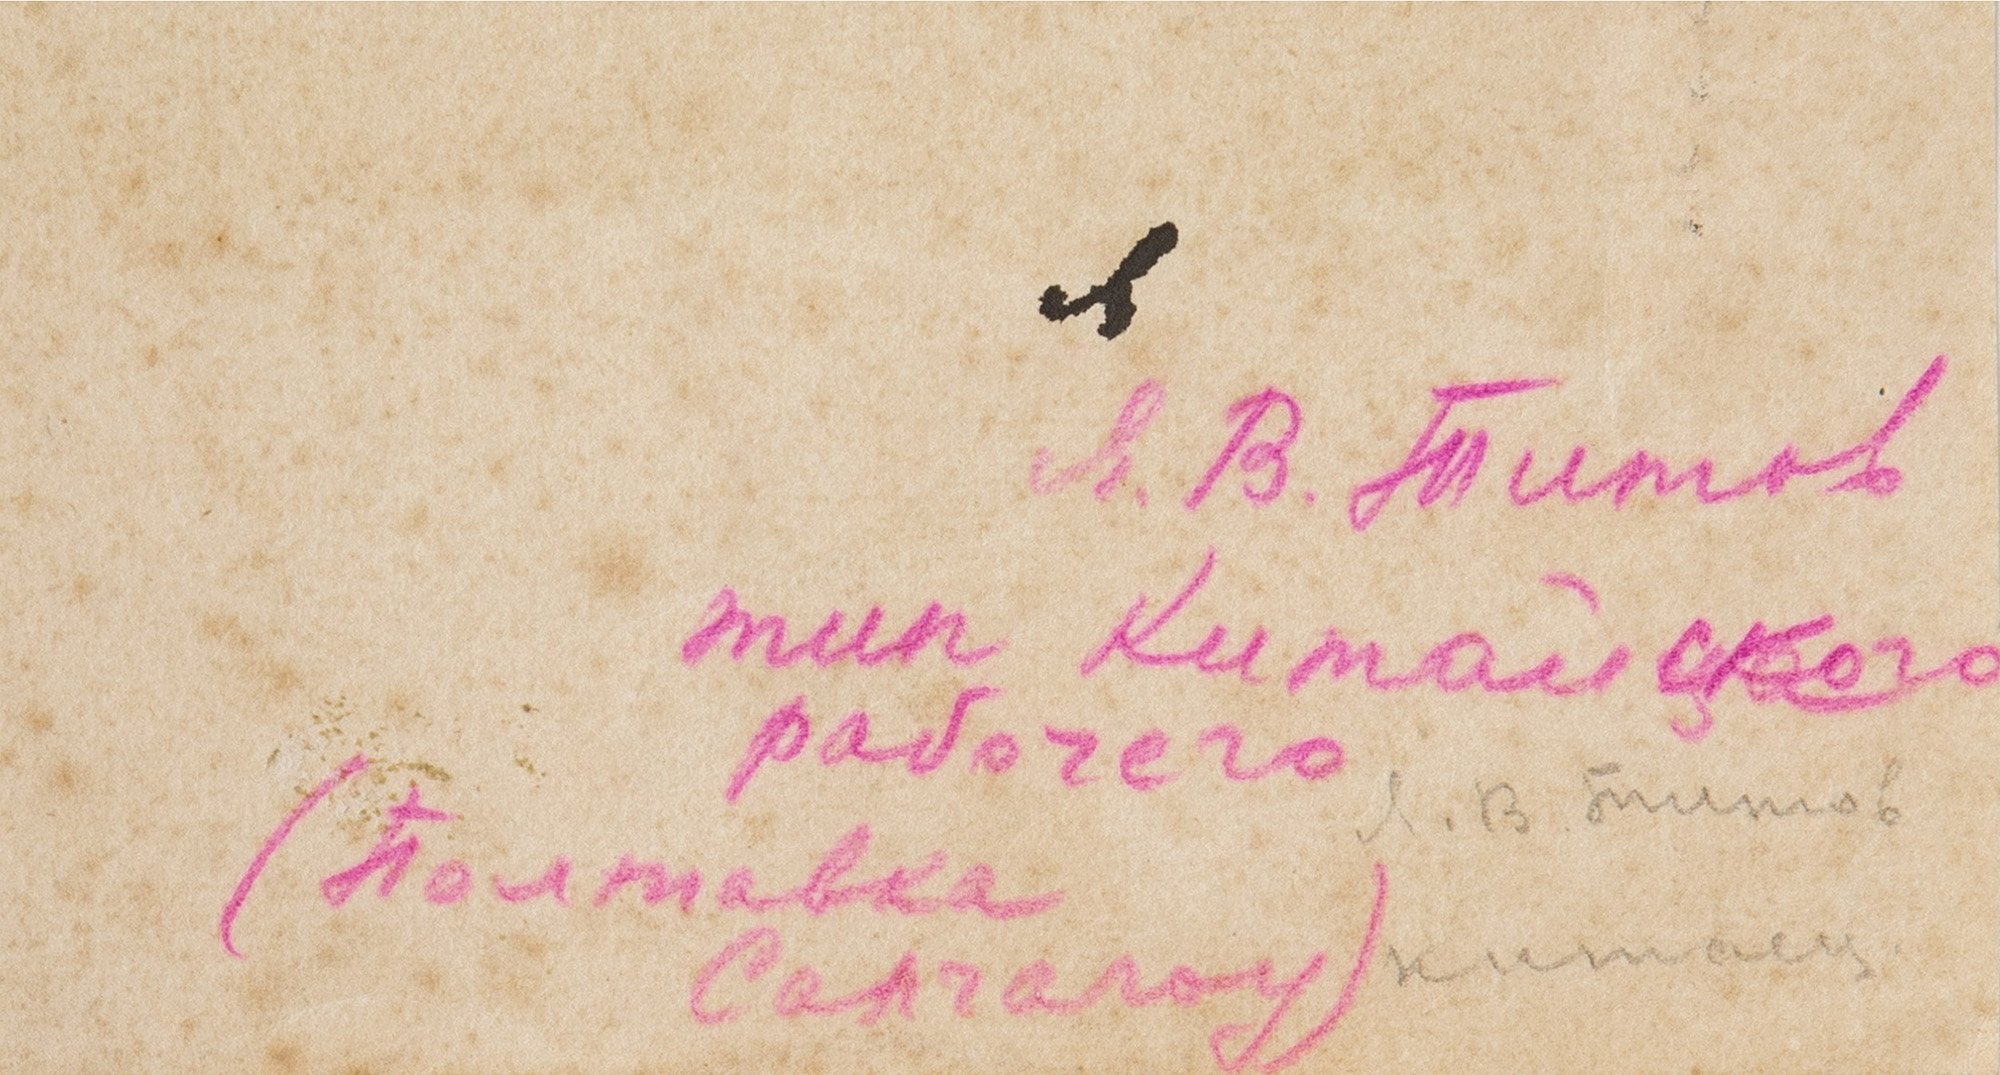 Л. В. Титов
тип Китайского
рабочего
Л. В. Титов
(Полтавка
Санчагоу)
китаец